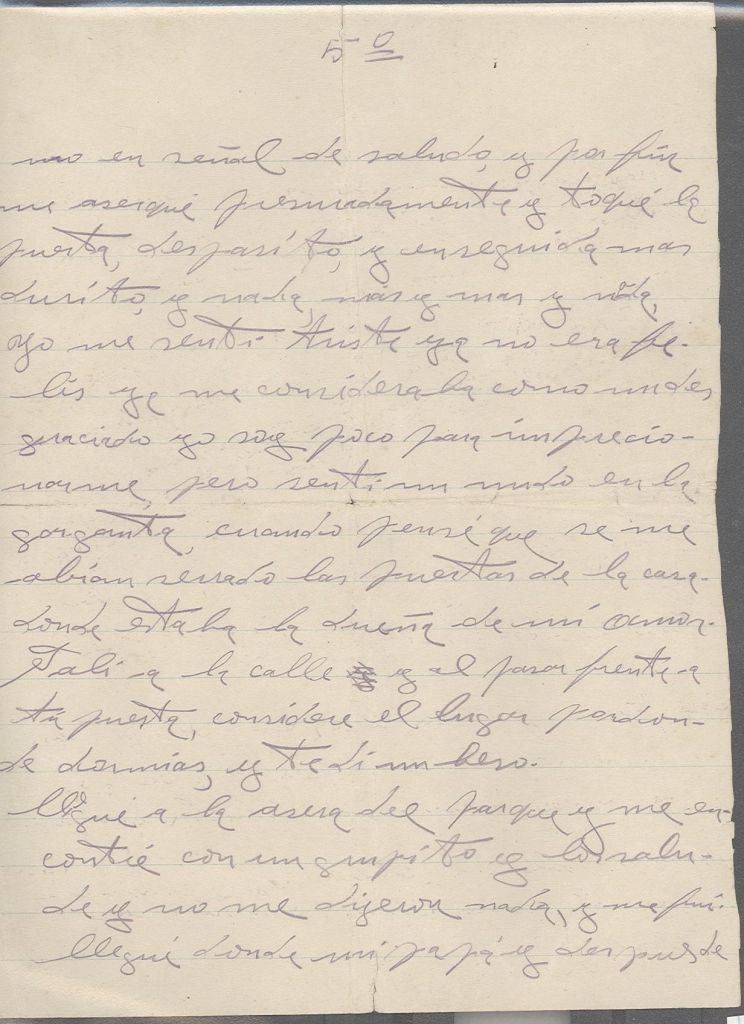 5º
no en señal de saludo, y por fin
me aserqué presuradamente y toqué la
puerta, despasíto, y enseguida mas
durito, y nada, más y mas y nada,
yo me sentí triste ya no era fe-
lis ya me consideraba como un des
graciado yo soy poco para imprecio-
narme, pero sentí un nudo en la
garganta, cuando pensé que se me
abían serrado las puertas de la casa
donde estaba la dueña de mi amor.
Salí a la calle y al pasar frente a
tu puerta, considere el lugar por don-
de dormias, y te di un beso.
Llegué a la asera del parque y me en-
contré con un grupíto y los salu-
de y no me dijeron nada, y me fui.
llegué donde mi papá y despues de